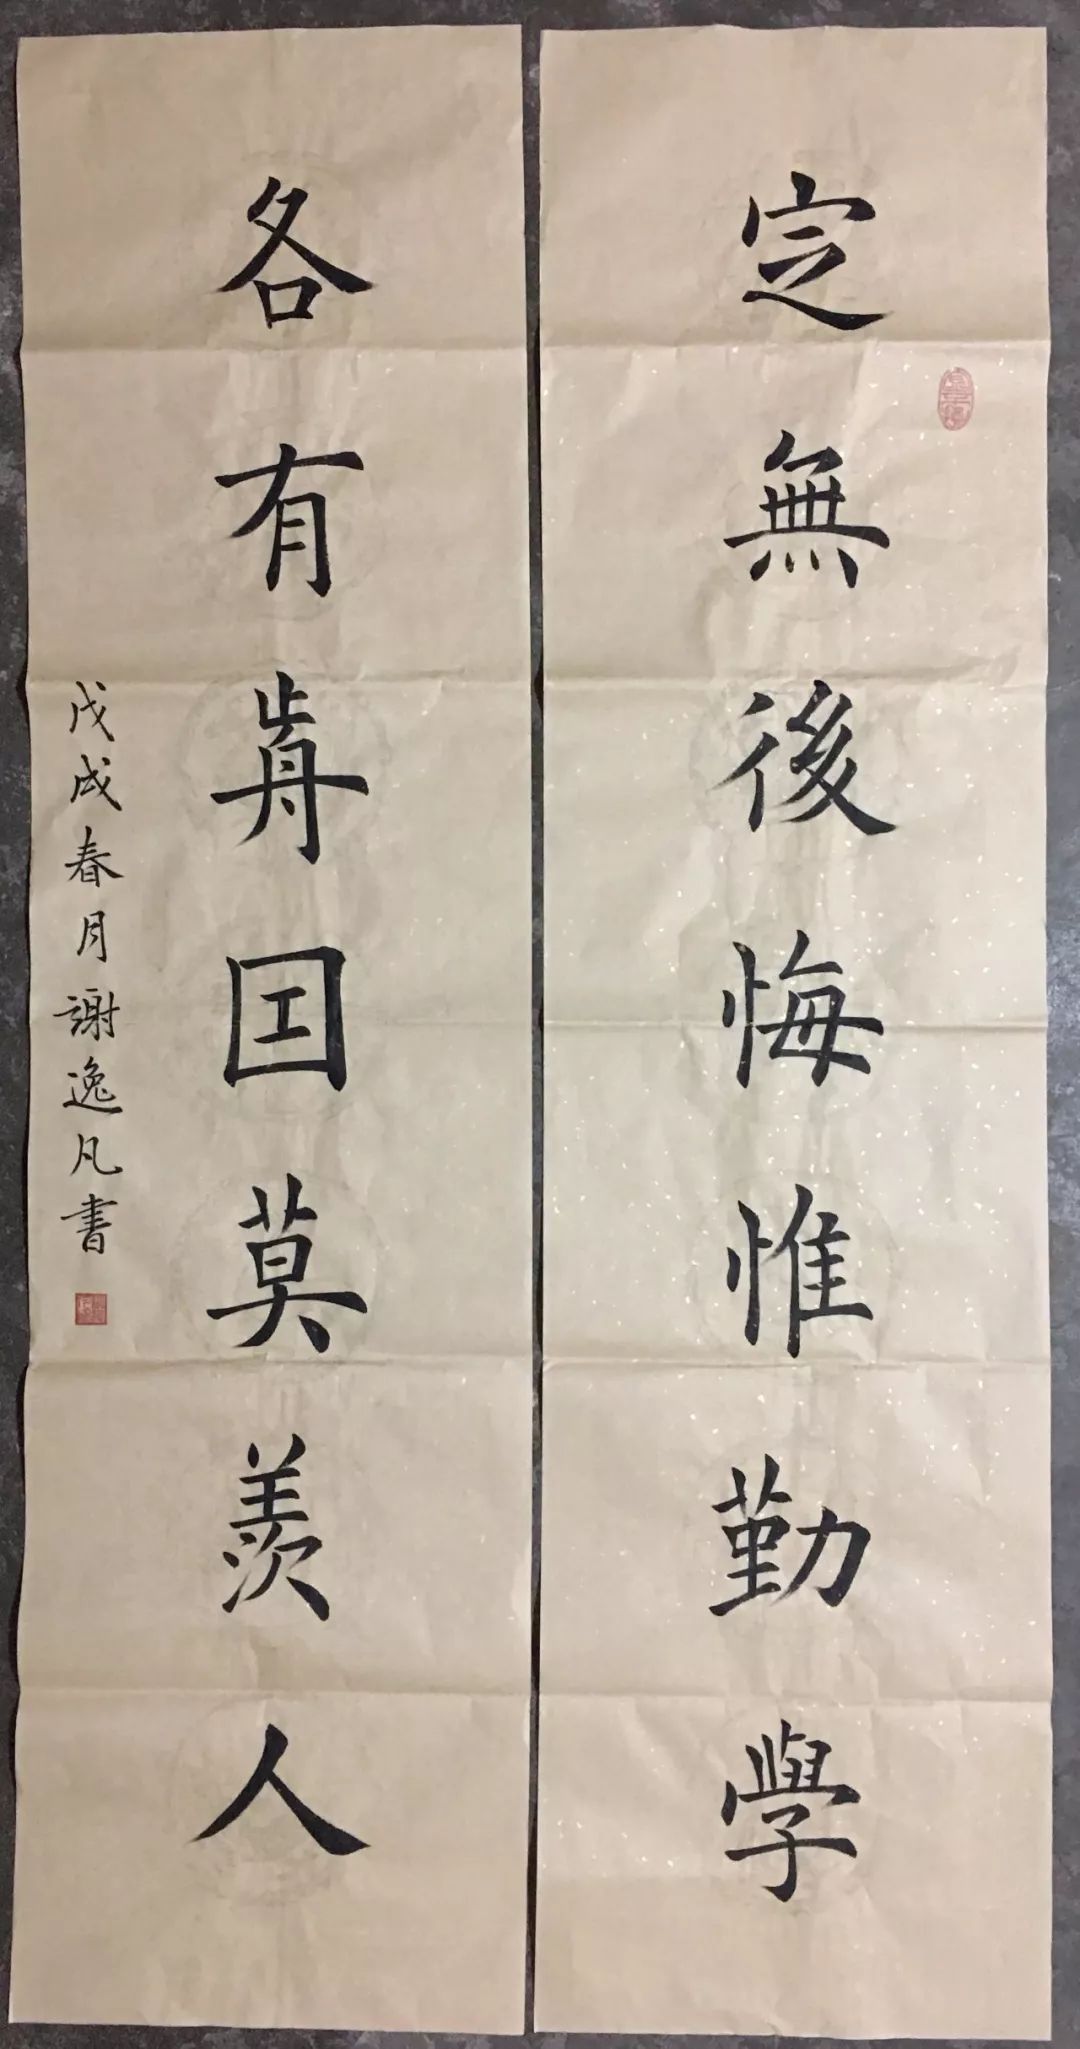 定無後悔惟勤學
各有歬囙莫羨人
戊戌春月謝逸凡書